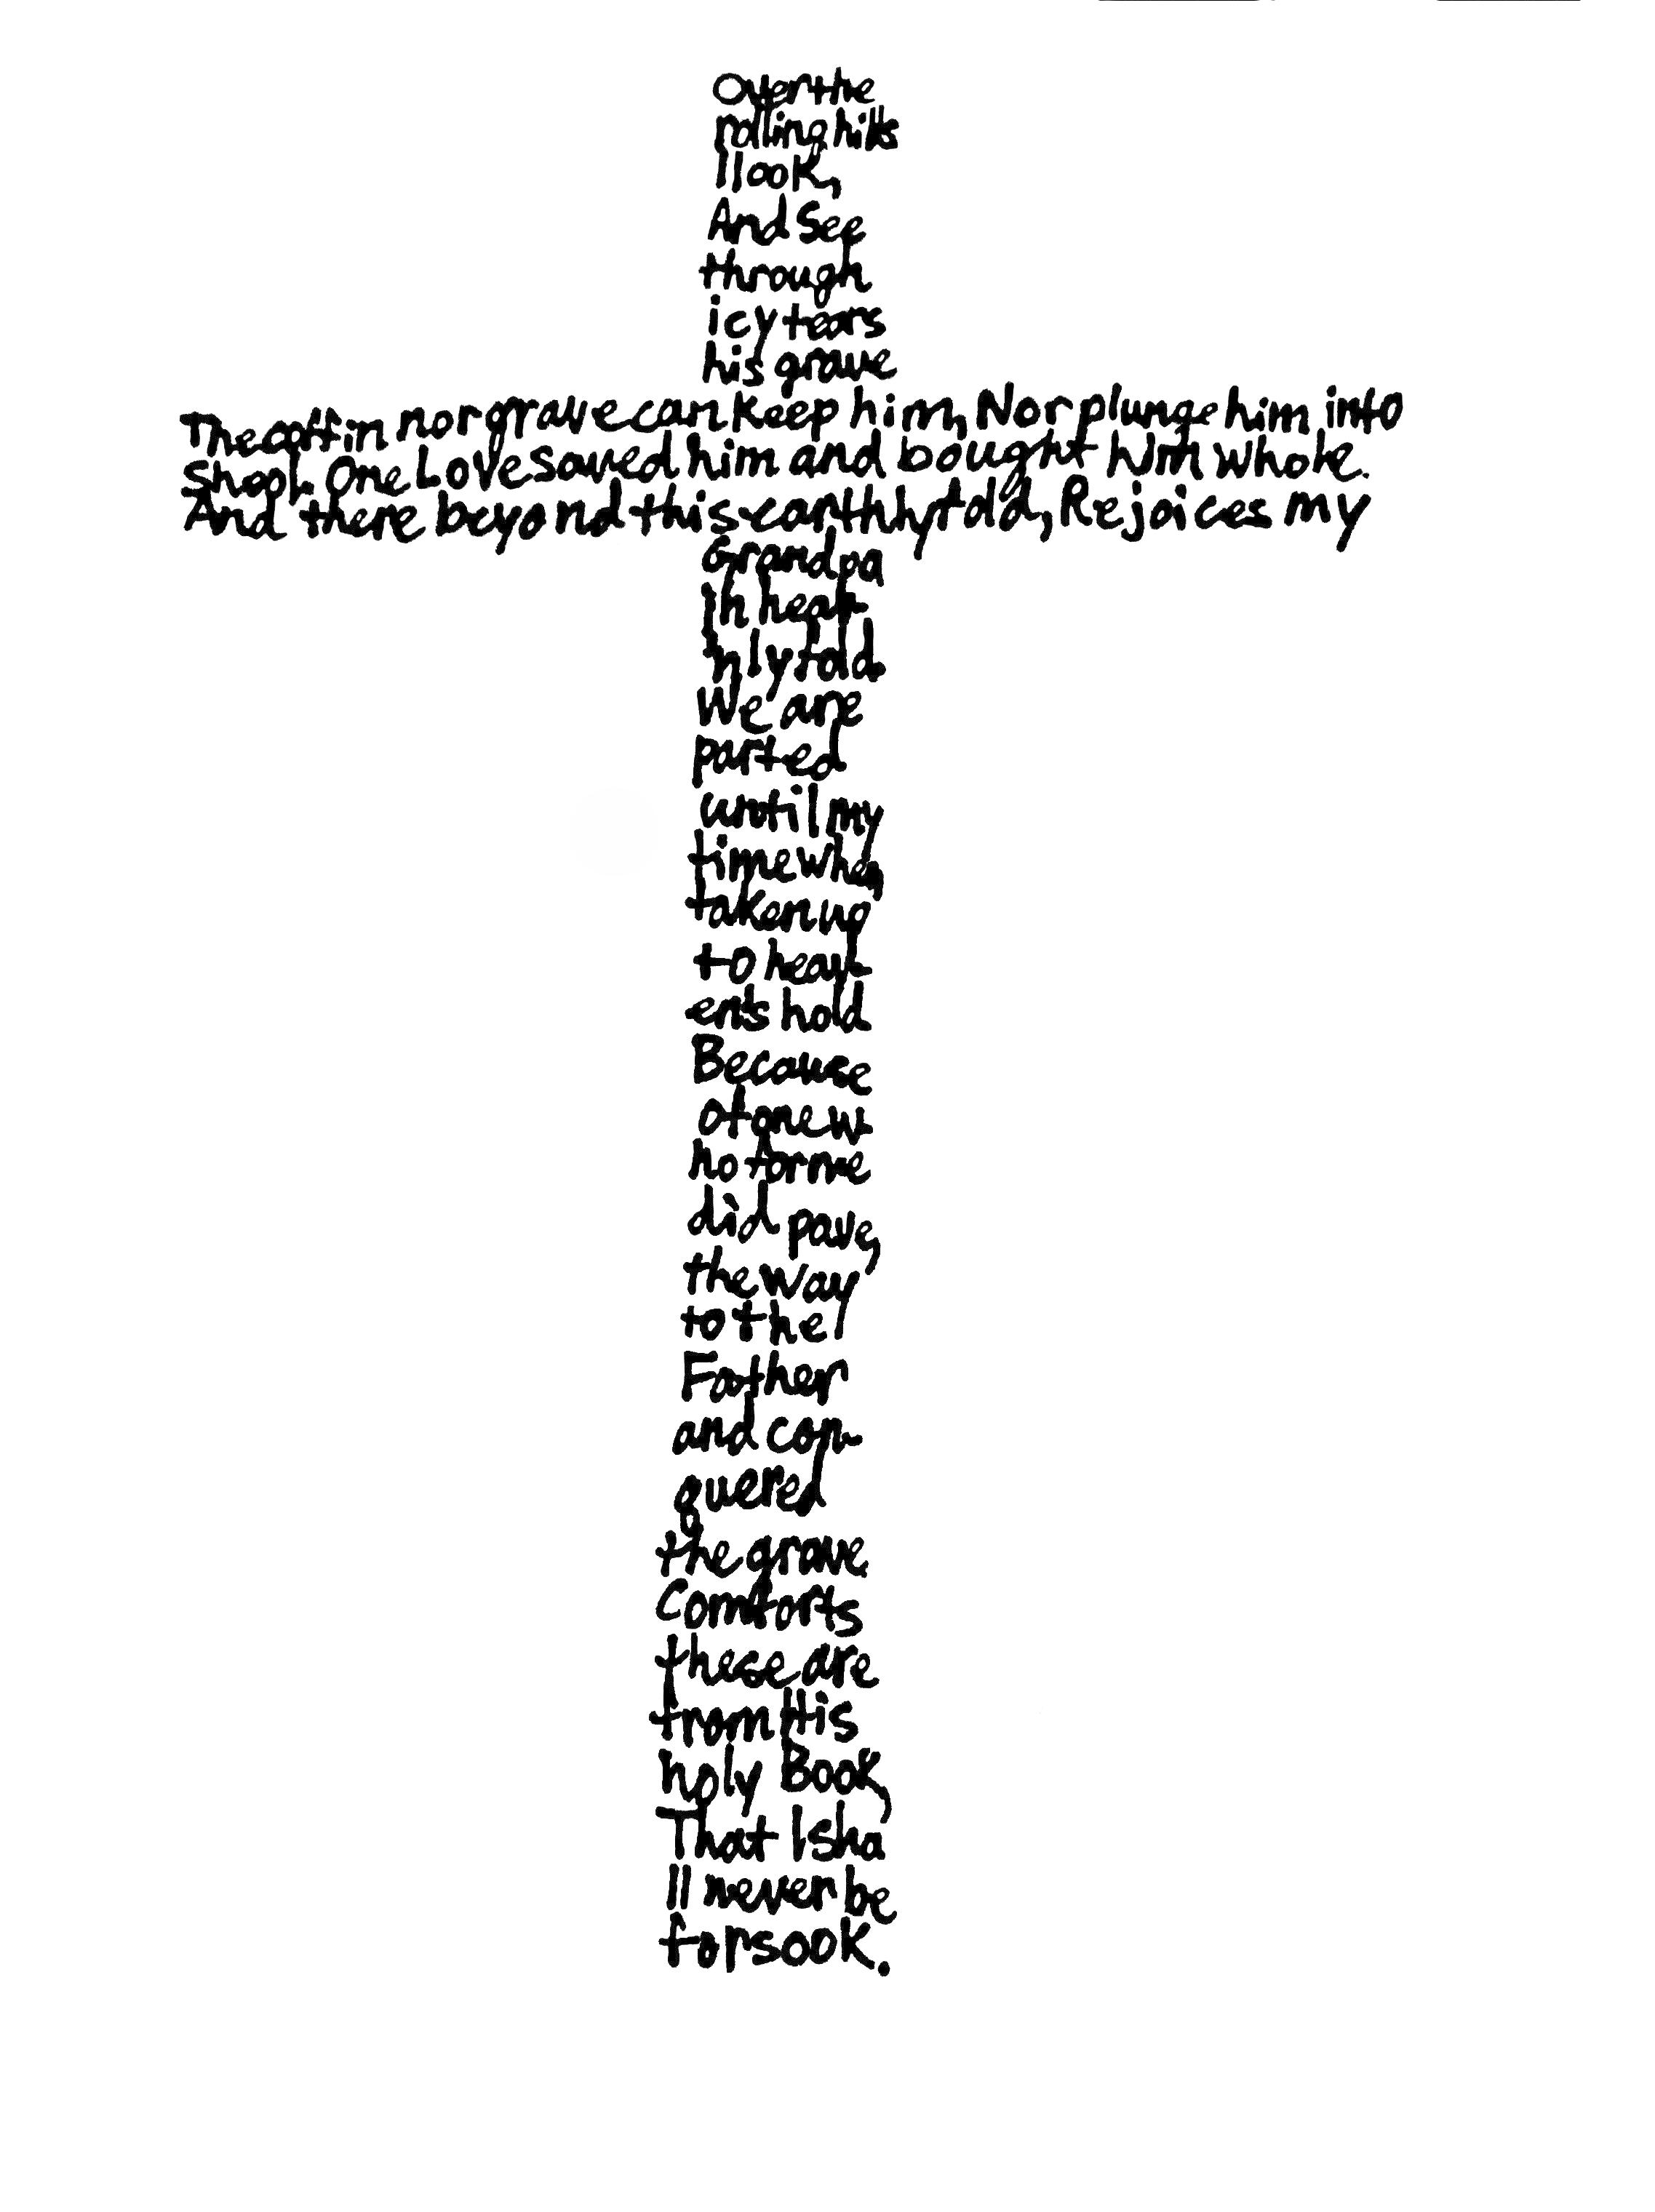 Over the
rolling hills
I look,
And see
through
icy tears
his grave
The coffin nor grave can keep him, Nor plunge him into
Sheol. One Love saved him and bought him whole.
And there beyond this earthly fold, Rejoices my
Grandpa
in heav-
'nly fold.
We are
parted
until my
time when,
taken up
to heav-
en's hold
Because
of one w-
ho for me
did pave,
the way
to the
Father
and con-
quered
the grave
Comforts
these are
from His
holy Book,
That I sha
ll never be
forsook.